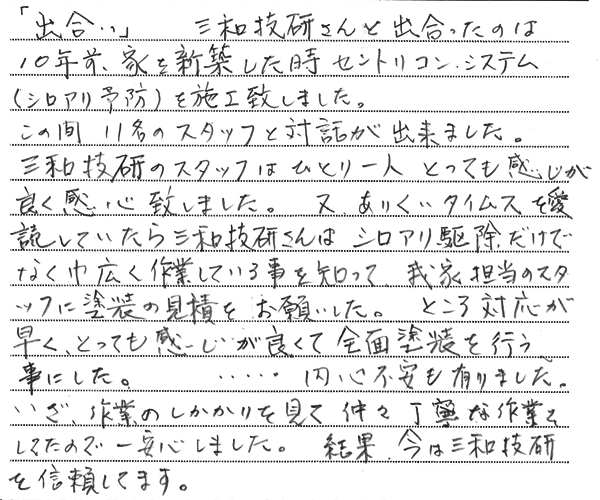 「出合い」　三和技研さんと出合ったのは
10年前、家を新築した時 セントリコン・システム
(シロアリ予防)を施工致しました。
この間 11名のスタッフと対話が出来ました。
三和技研のスタッフは ひとり一人 とっても感じが
良く感心致しました。 又、ありくいタイムスを愛
読していたら三和技研さんは シロアリ駆除だけで
なく巾広く作業している事を知って、我家担当のスタ
ッフに塗装の見積を お願いした。 ところ対応が
早く、とっても感じが良くて全面塗装を行う
事にした。 ・・・・・ 内心不安も有りました。
いざ、作業のしかかりを見て 仲々 丁寧な作業を
してたので一安心しました。 結果、今は三和技研
を信頼してます。